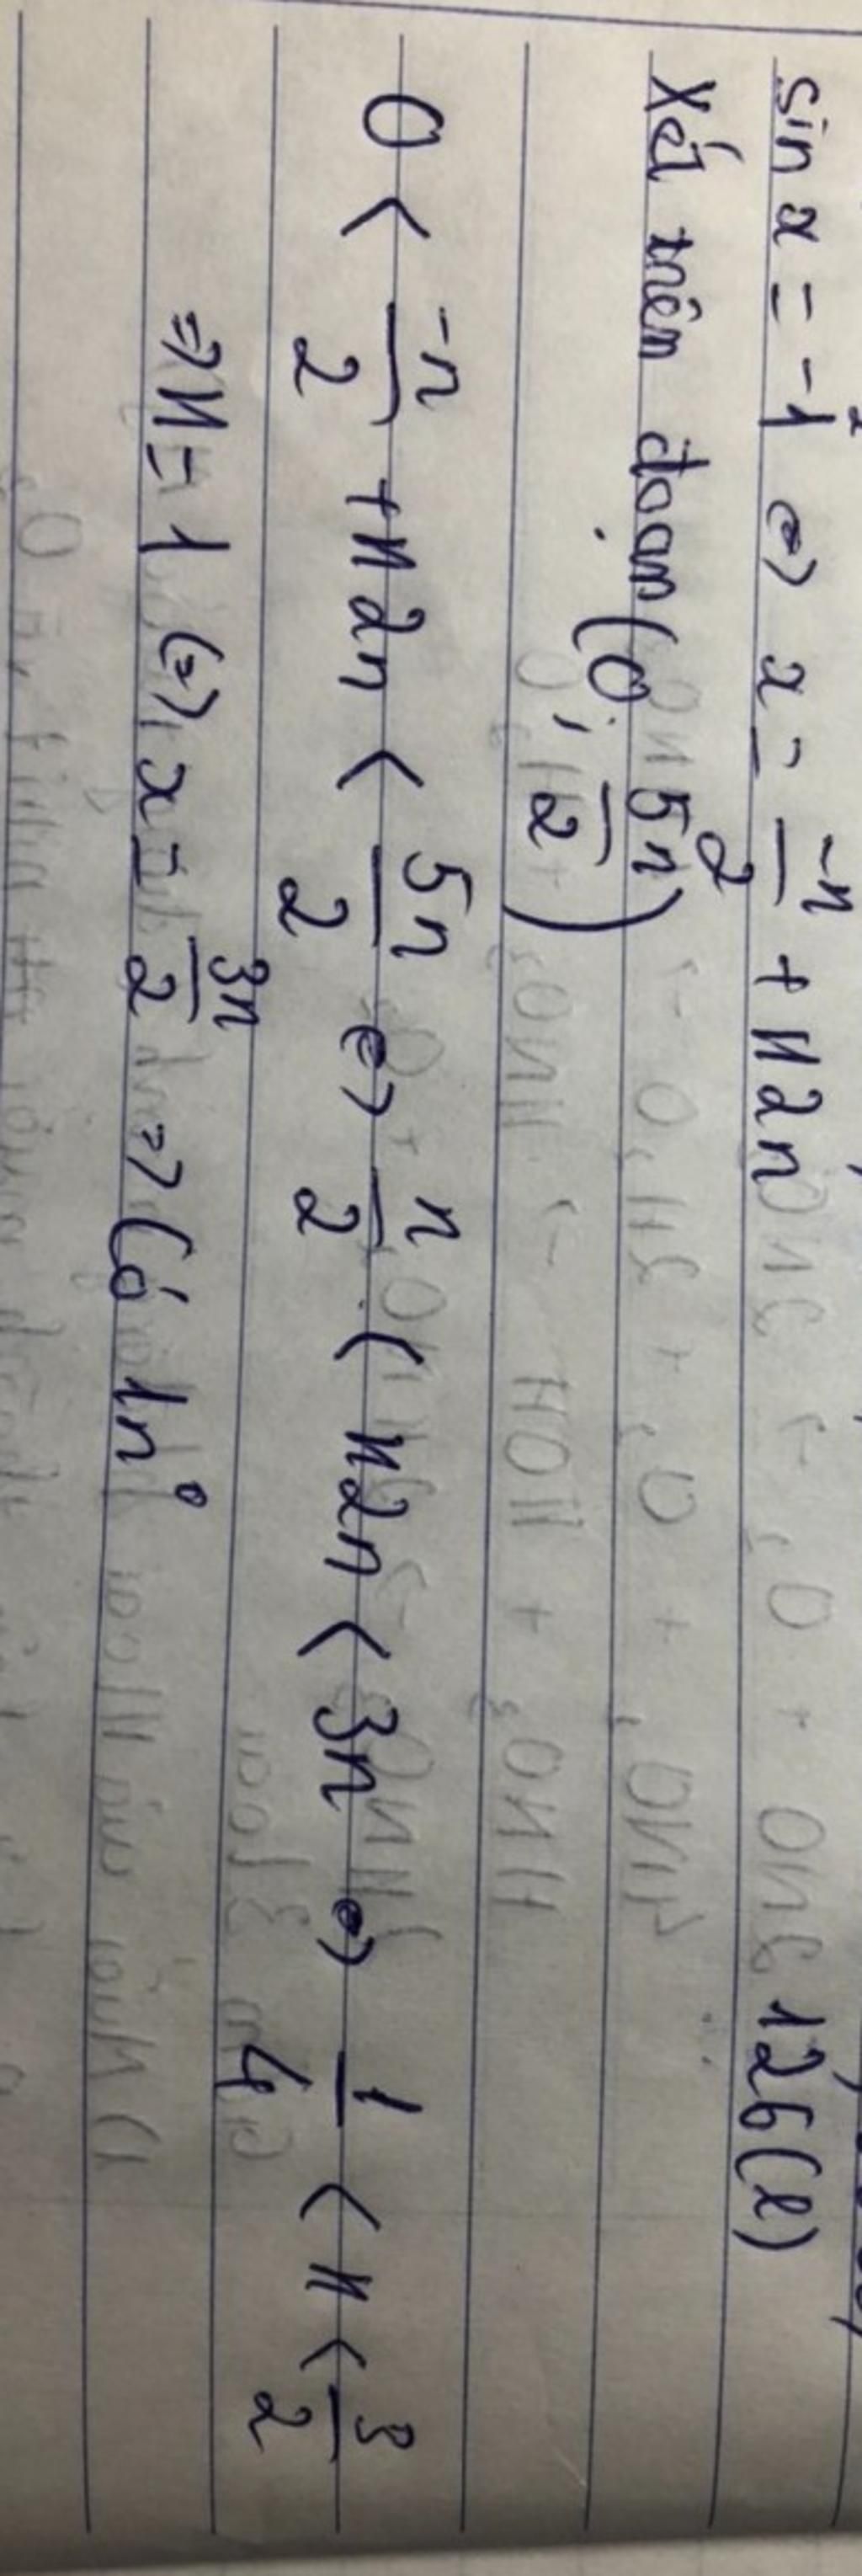 sin x = -1 <=> x = -π/2 + k2π
Xét trên đoạn (0; 5π/2)
0 < -π/2 + k2π < 5π/2 <=> π/2 < k2π < 3π <=> 1/4 < k < 3/2
=> k = 1 <=> x = 3π/2 => Có 1n°
126(l)